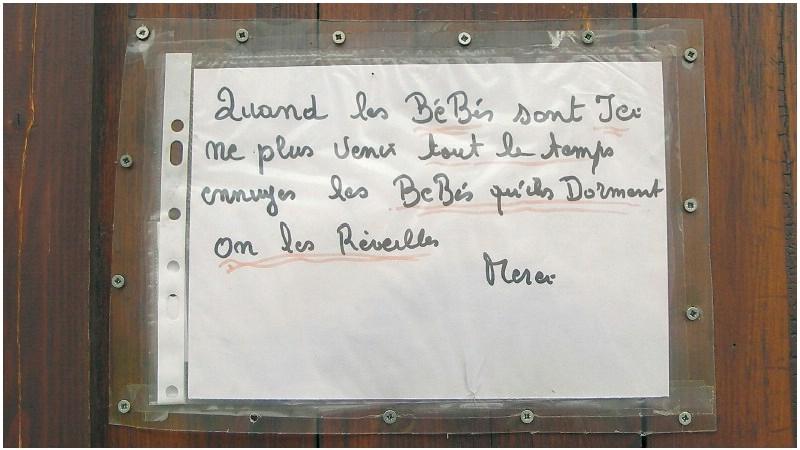 Quand les BéBés sont Ici
ne plus venir tout le temps
ennuyes les BeBés qu'ils Dorment
on les Réveilles
Merci